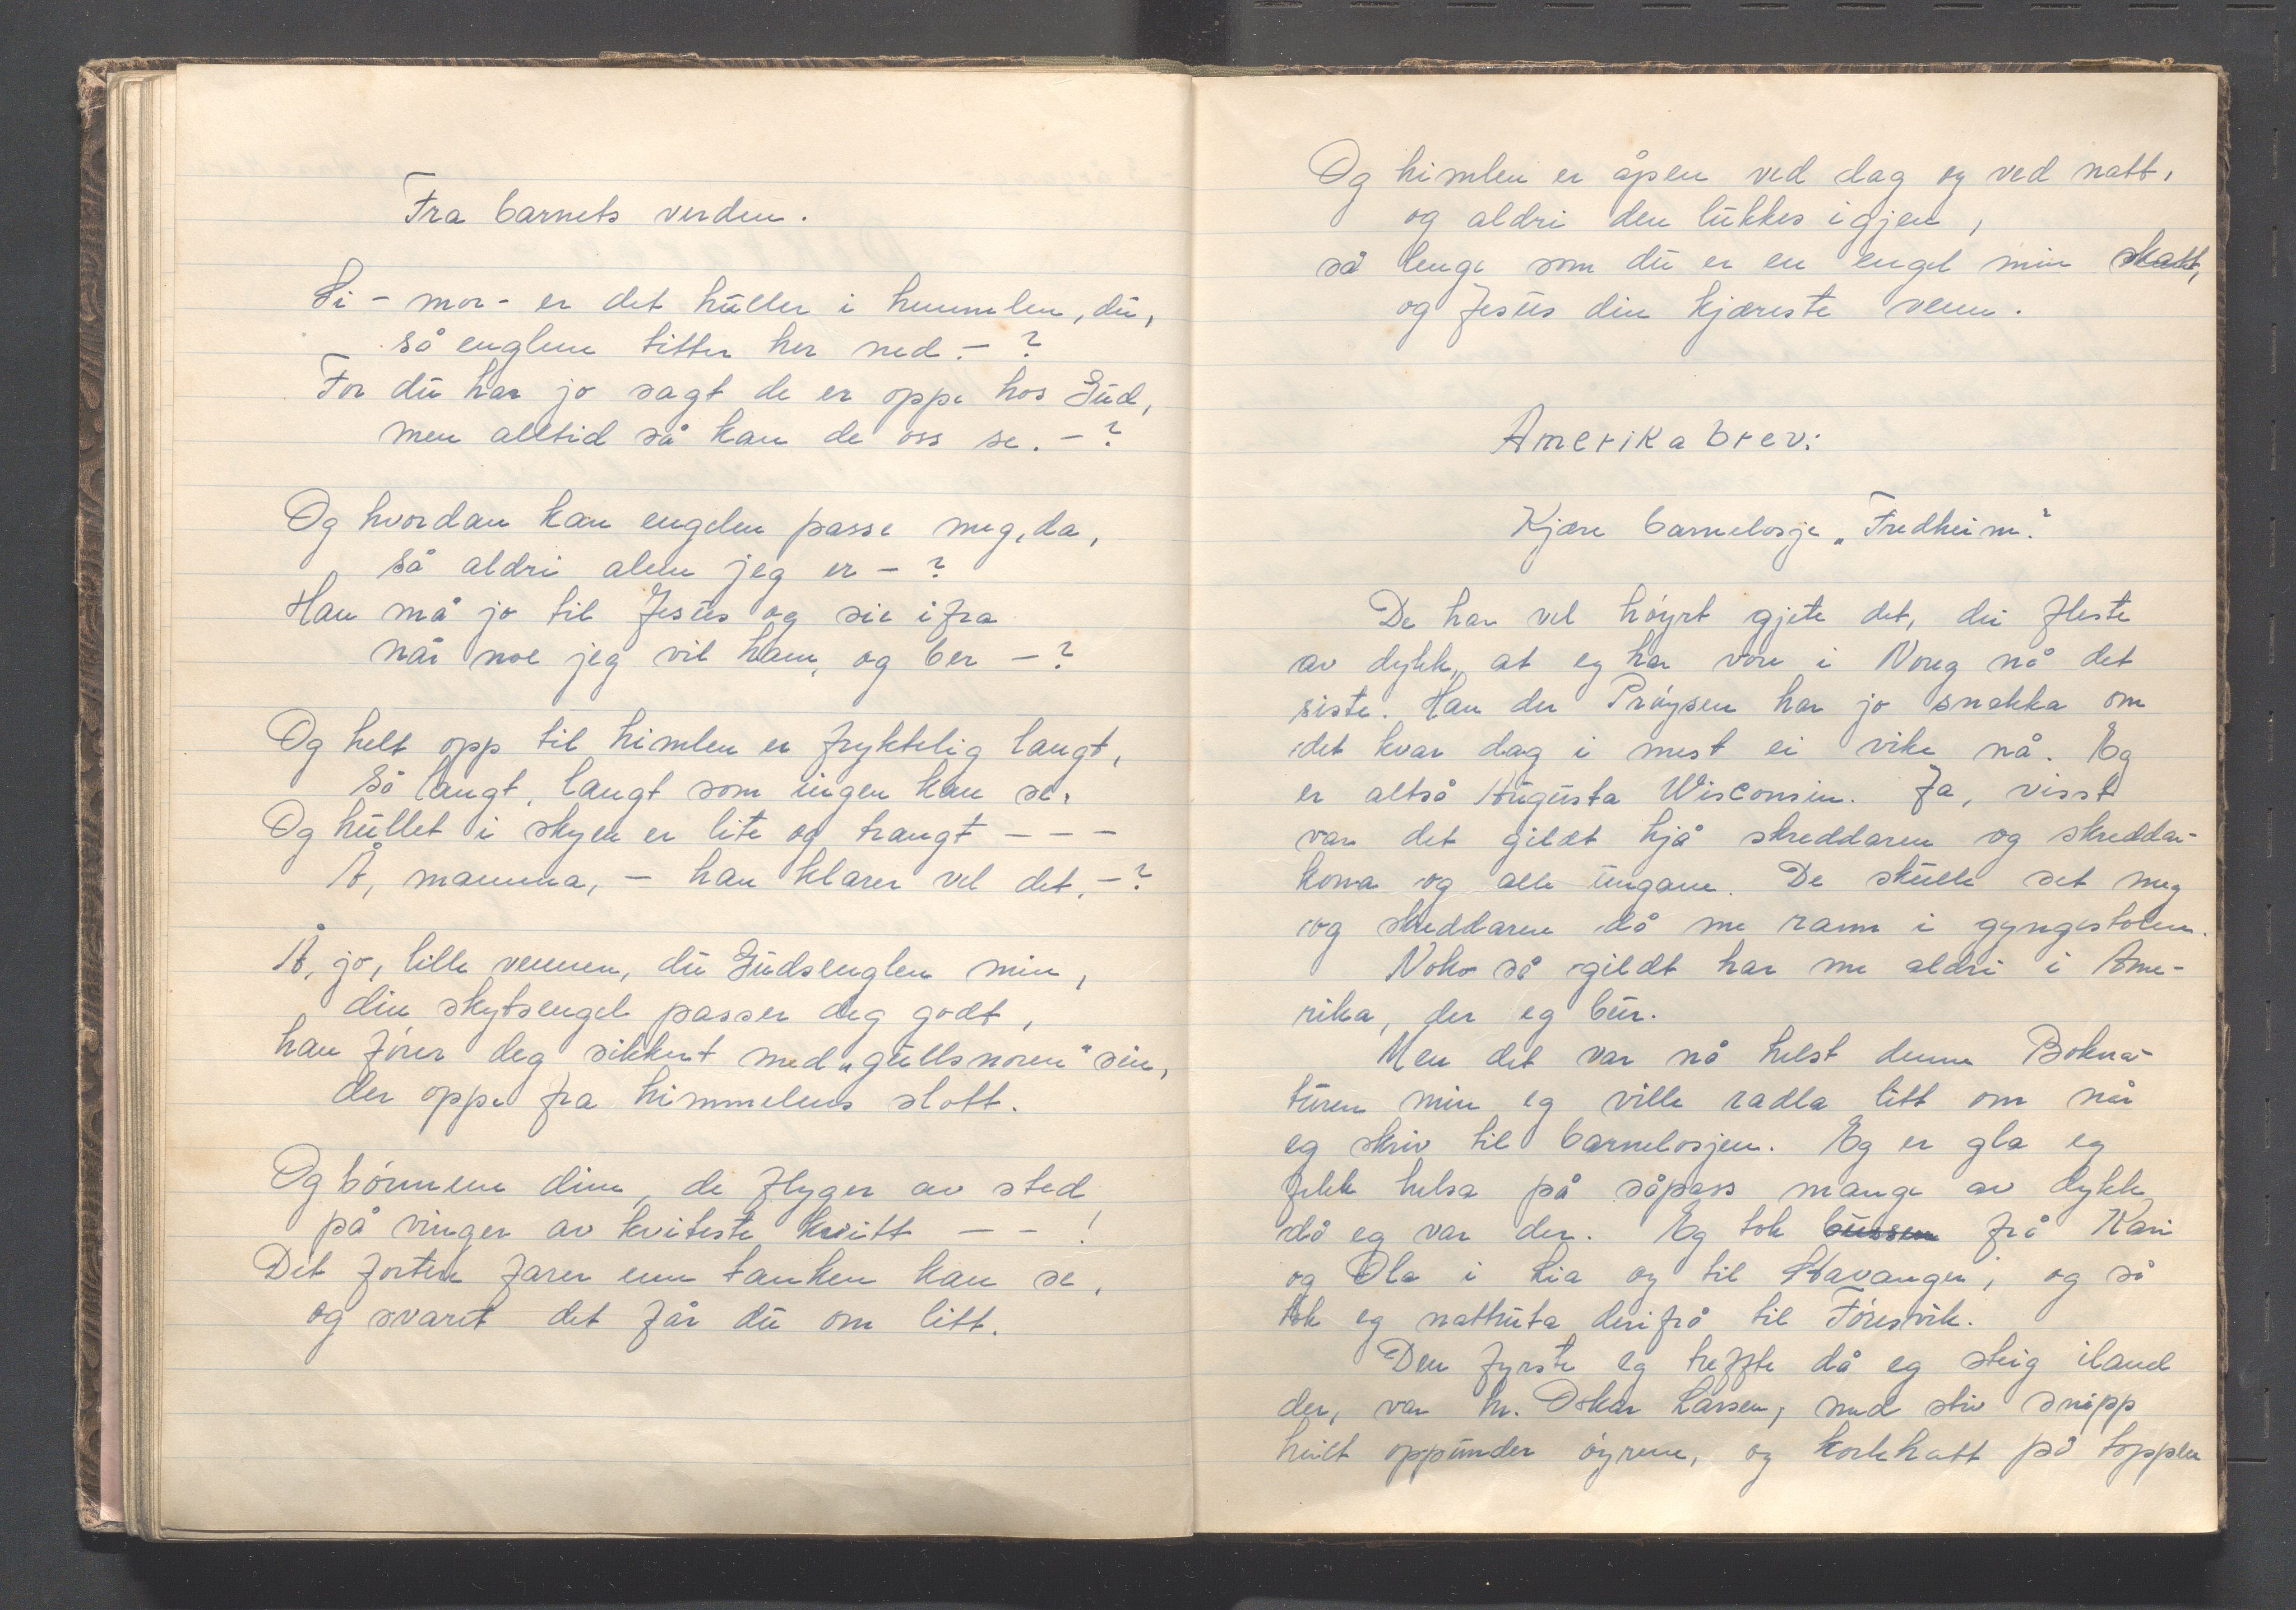 Fra barnets verden.
Si - mor - er det huller i himmlen, du,
så englene titter her ned. - ?
For du har jo sagt de er oppe hos Gud,
men alltid så kan de oss se. - ?
Og hvordan kan engelen passe meg, da,
så aldri alene jeg er - ?
Han må jo til Jesus og sie ifra
når noe jeg vil ham, og ber - ?
Og helt opp til himlen er fryktelig langt,
så langt, langt som ingen kan se,
Og hullet i skyen er lite og trangt - - -
Å, mamma, - han klarer vel det, - ?
Å, jo, lille vennen, du Gudsenglen min,
din skytsengel passer deg godt,
han fører deg sikkert med „gullsnoren" sin,
der oppe fra himmelens slott.
Og bønnene dine, de flyger av sted
på vinger av kviteste kvitt - - !
Det fortere farer enn tanken kan se,
og svaret det får du om litt.
Og himlen er åpen ved dag og ved natt,
og aldri den lukkes igjen,
så lenge som du er en engel min skatt,
og Jesus din kjæreste venn.
Amerikabrev:
Kjære barnelosje „Fredheim".
De har vel høyrt gjete det, dei fleste
av dykk, at eg har vore i Noreg nå det
siste. Han der Prøysen har jo snakka om
det kvar dag i mest ei vike nå. Eg
er altså Augusta Wisconsin. Ja, visst
var det gildt hjå skreddaren og skreddar-
kona og alle ungane. De skulle set meg
og skreddaren då me rann i gyngestolen.
Noko så gildt har me aldri i Ame-
rika, der eg bur.
Men det var nå helst denne Bokna-
turen min eg ville radla litt om når
eg skriv til barnelosjen. Eg er gla eg
fekk helsa på såpass mange av dykk
då eg var der. Eg tok bussen frå Kari
og Ola i Lia og til Stavanger, og så
tok eg nattruta derifrå til Føresvik.
Den fyrste eg treffte då eg steig iland
der, var hr. Oskar Larsen, med stiv snipp
heilt oppunder øyrene, og korkhatt på toppen